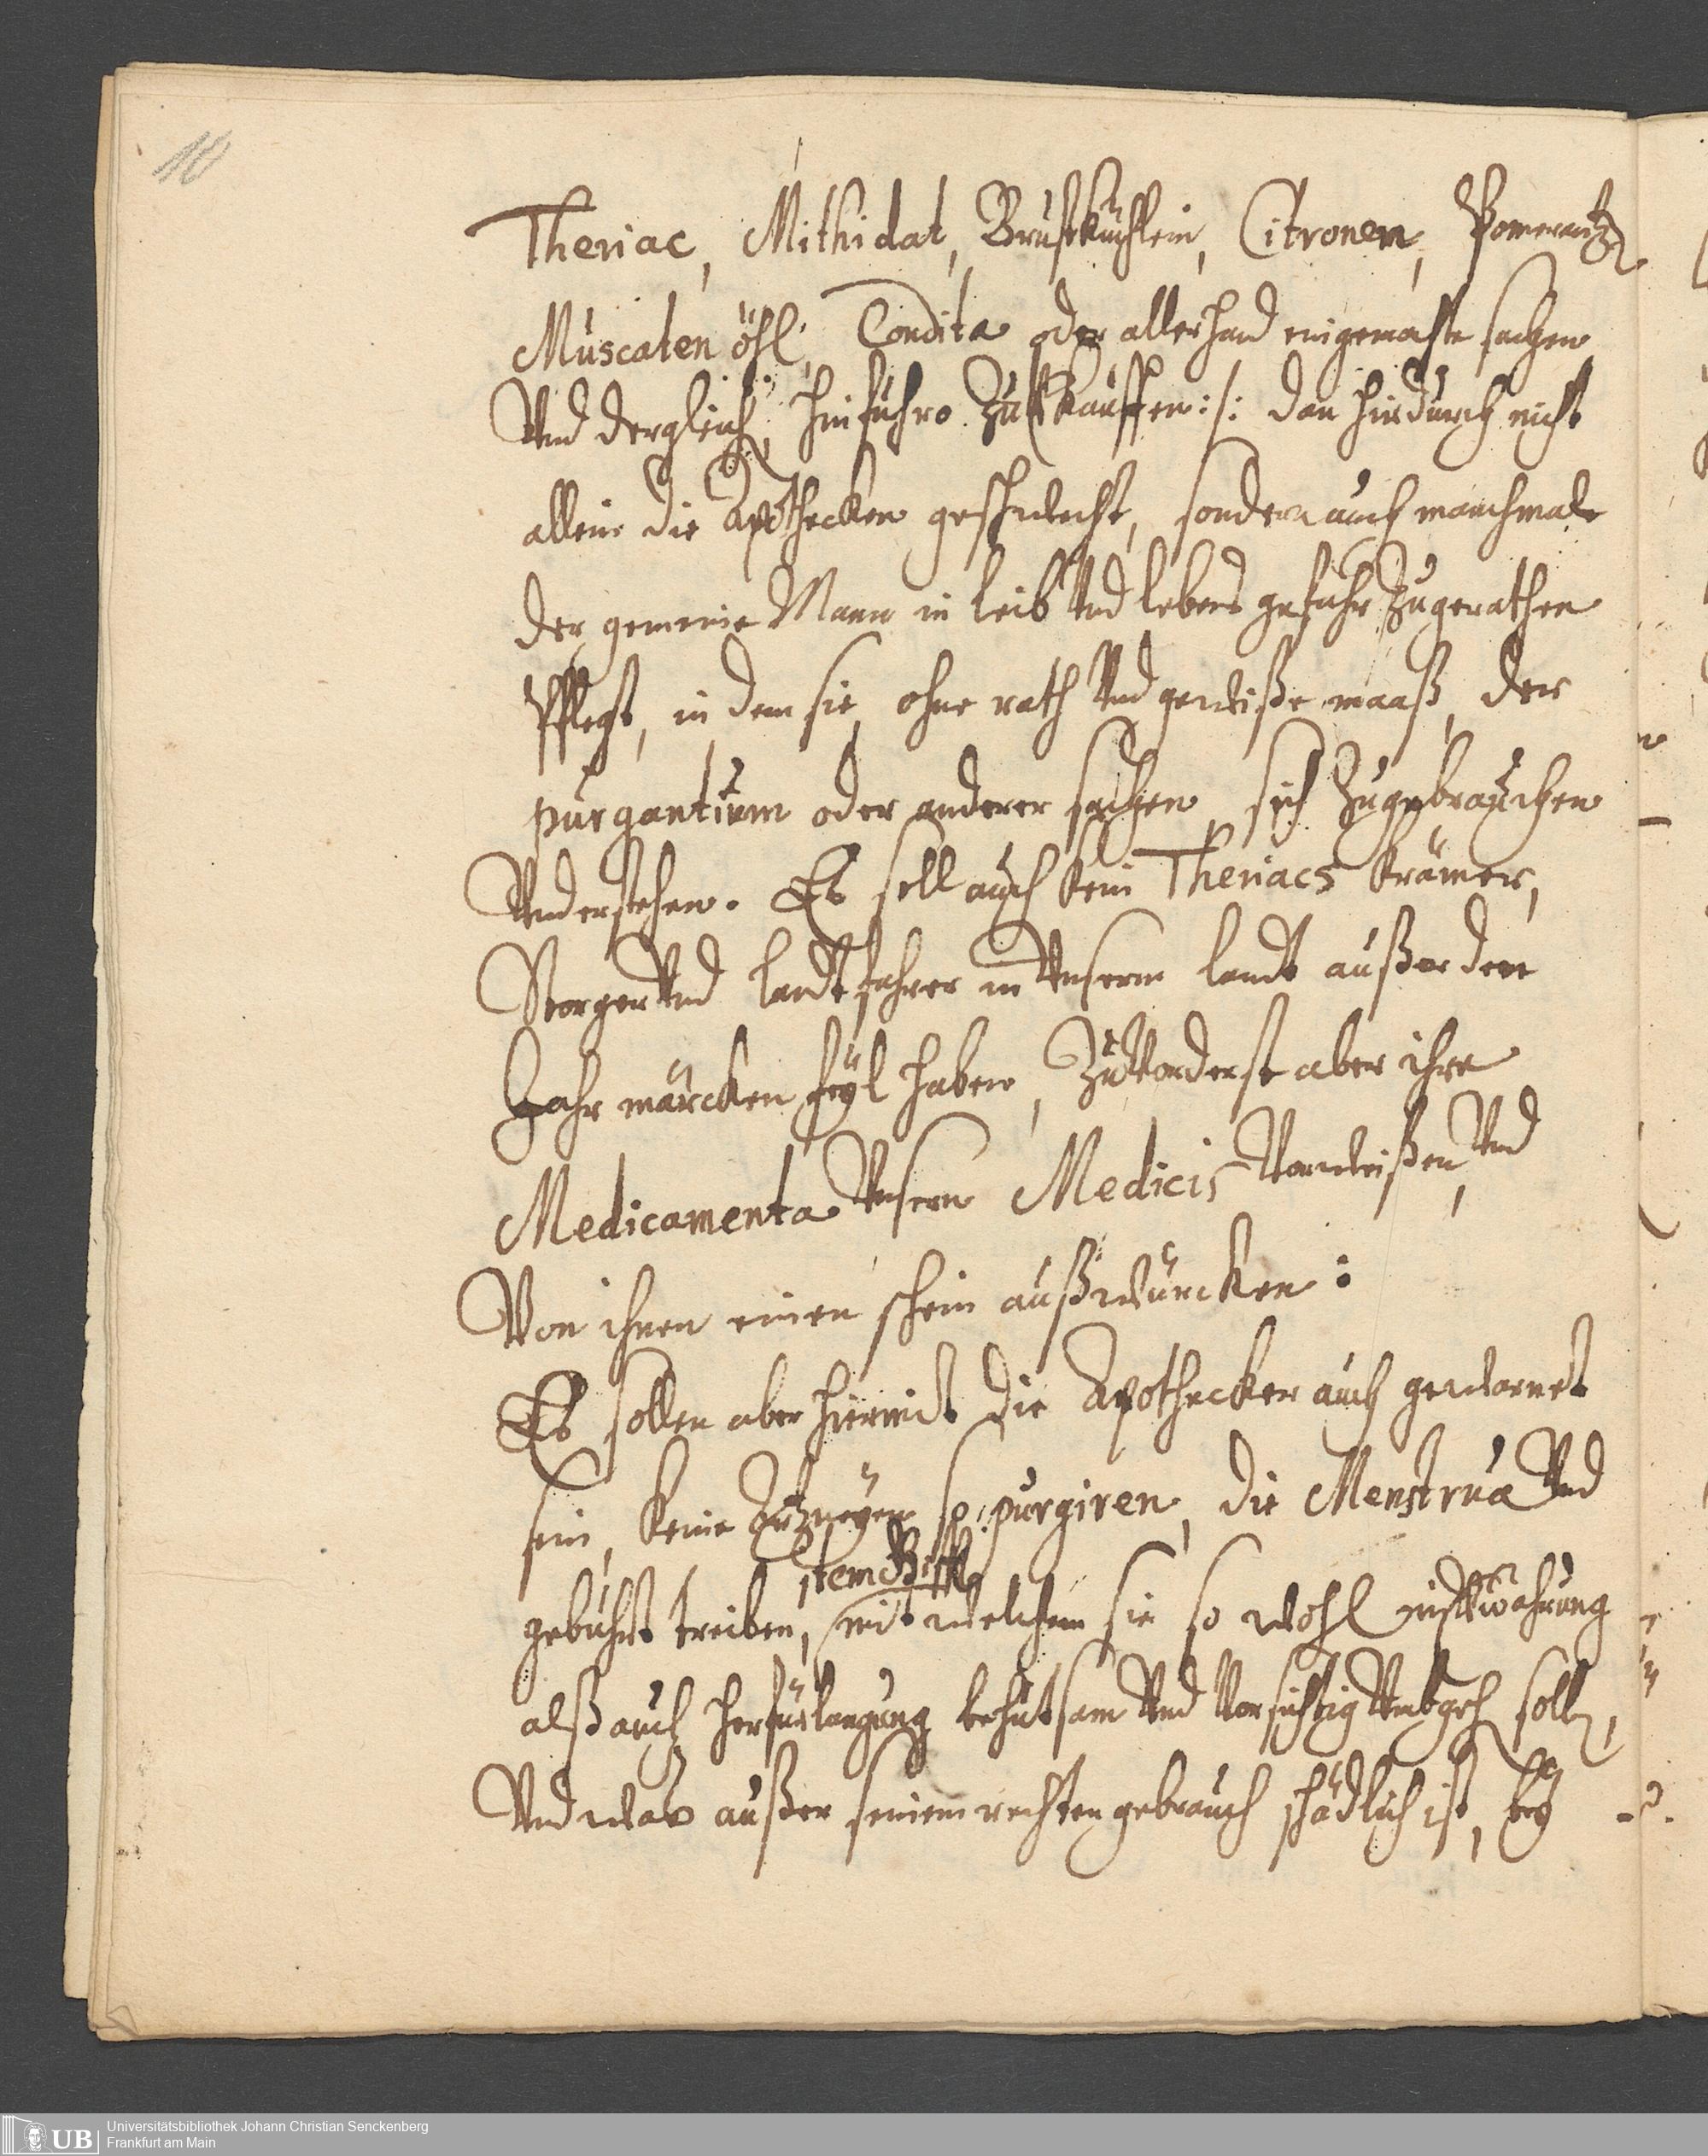 10
Theriac, Mithidat, Brustküchlein, Citronen, Pomerantz
Muscaten öhl, Condita oder allerhand eingemachte sachen
Vnd dergleich, hinführo zukauffen :/: dan hirdurch nicht
allein die Apothecken geschwecht, sondern auch manchmals
der gemeine Mann in leib Vnd lebens gefahr zugerathen
Pflegt, in dem sie, ohne rath Vnd gewiße maaß, der
purgantium oder anderer sachen, sich zugebrauchen
Vnderstehen. Es soll auch kein Theriacs krämer,
Storger Vnd landtfahrer in Vnserm landt außer den
Jahr märcken feyl haben, zuVorderst aber ihre
Medicamenta Vnsern Medicis Vorweißen, Vnd
Von ihnen einen schein außwürcken:
Es sollen aber hiermit die Apothecker auch gewarnet
sein, keine Artzneyen so purgiren, die Menstrua Vnd
item Gifft
gebuhrt treiben, mit welchem sie so wohl in Verwahrung
alß auch herfürlangung behutsam Vnd Vorsichtig Vmbgeh solln,
Vnd was außer seinem rechten gebrauch schädlich ist, bey
UB Universitätsbibliothek Johann Christian Senckenberg
Frankfurt am Main